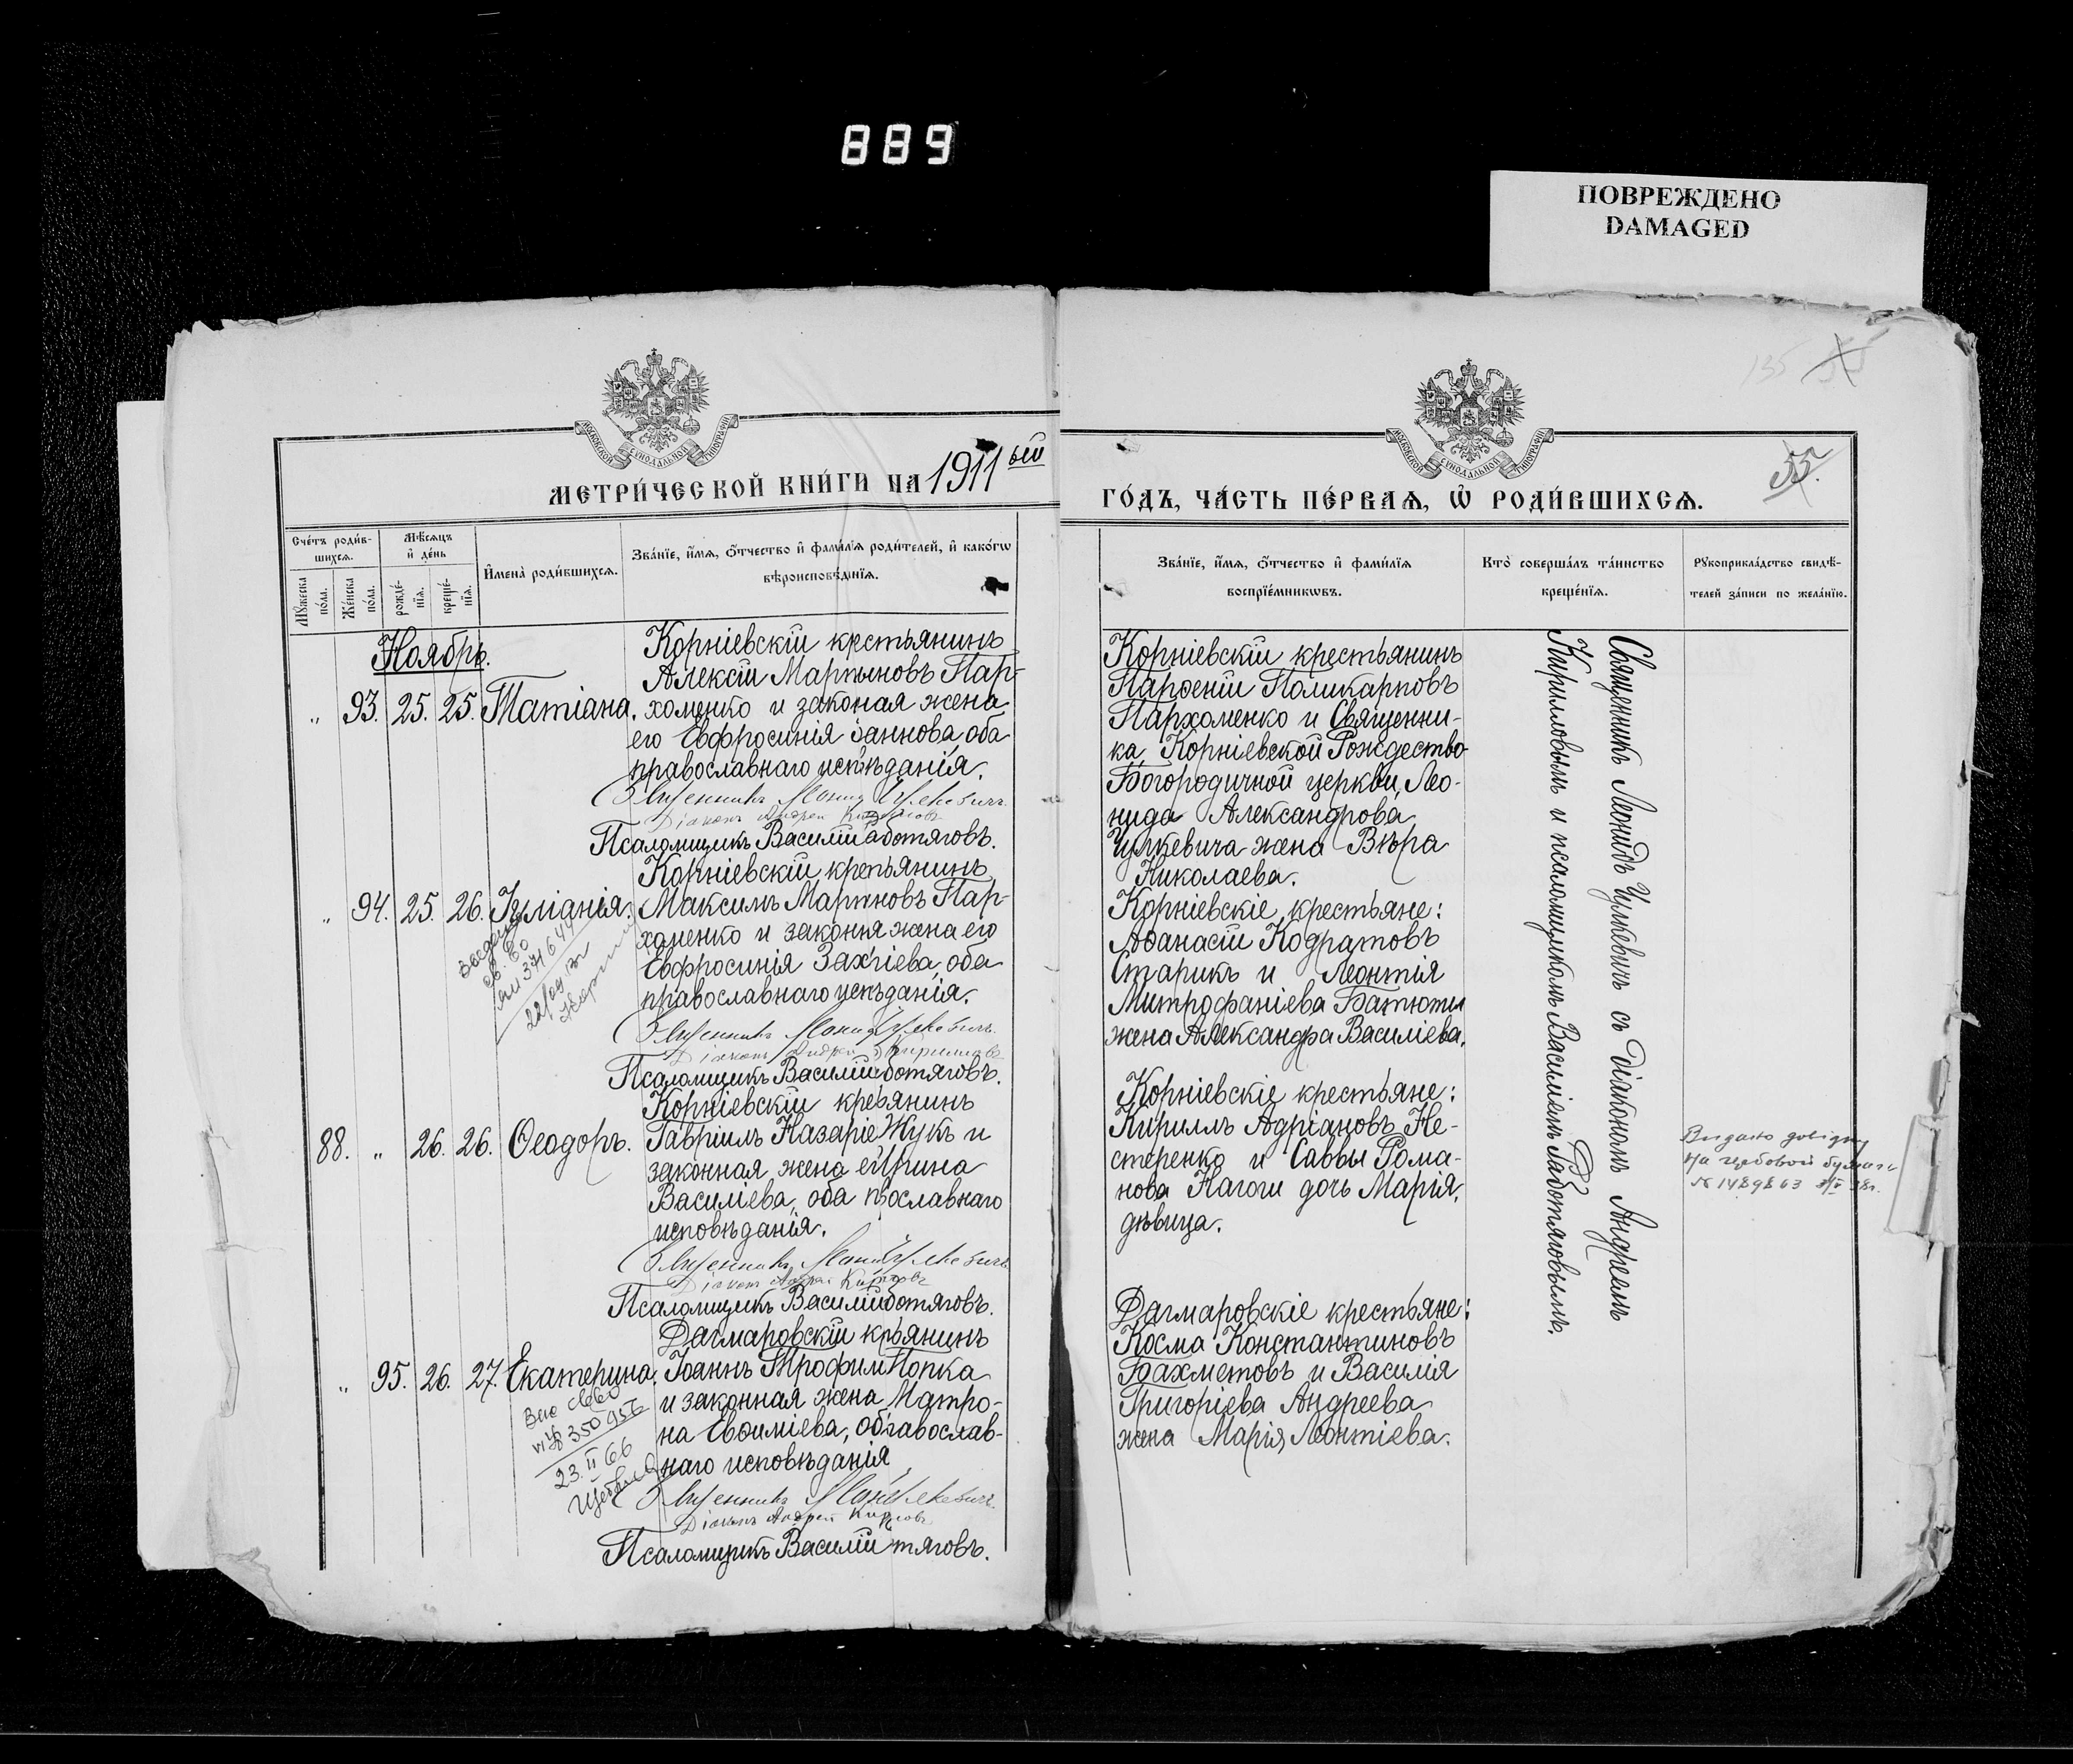 889
ПОВРЕЖДЕНО
DAMAGED
135
55.
МОСКОВСКОЙ СѴНОДАЛЬНОЙ ТИПОГРАФІИ
МОСКОВСКОЙ СѴНОДАЛЬНОЙ ТИПОГРАФІИ
МЕТРИ́ЧЕСКОЙ КНИ́ГИ НА 1911ый
ГО́ДЪ, ЧА́СТЬ ПЕ́РВАѦ, Ѽ РОДИ́ВШИХСѦ.
Сче́тъ роди́в-
шихсѧ.
Мꙋжеска
по́ла.
Же́нска
по́ла.
Мѣ́сѧцъ
и҆ де́нь
рожде́-
нїѧ.
креще́-
нїѧ.
И҆мена̀ роди́вшихсѧ.
Зва́нїе, и҆́мѧ, ѻ҆́тчество и҆ фами́лїѧ роди́телей, и҆ како́гѡ
вѣроисповѣ́данїѧ.
Зва́нїе, и҆́мѧ, ѻ҆́тчество и҆ фами́лїѧ
воспрїе́мникѡвъ.
Кто̀ соверша́лъ та́инство
креще́нїѧ.
Рꙋкоприкла́дство свидѣ́-
телей за́писи по жела́нїю.
Ноябрь.
„ 93. 25. 25. Татіана.
Корніевскій крестьянинъ
Алексій Мартыновъ Пар-
хоменко и законая жена
его Евфросинія Іаннова, оба
православнаго исповѣданія.
Священникъ Леонид Чулкевичъ
Діаконъ Андрей Кирилловъ
Псаломщикъ Василій Работяговъ.
Корніевскій крестьянинъ
Парѳеній Поликарповъ
Пархоменко и Священни-
ка Корніевской Рождество-
Богородичной церкви, Лео-
нида Александрова
Чулкевича жена Вѣра
Николаева.
„ 94. 25. 26. Іуліанія.
Корніевскій крестьянинъ
Максимъ Мартыновъ Пар-
хоменко и законая жена его
Евфросинія Захаріева, оба
православнаго исповѣданія.
Священникъ Леонид Чулкевичъ
Діаконъ Андрей Кирилловъ
Псаломщикъ Василій Работяговъ.
Корніевскіе крестьяне:
Аѳанасій Кодратовъ
Старикъ и Леонтія
Митрофаніева Батюты
жена Александра Василіева.
88. „ 26. 26. Ѳеодоръ.
Корніевскій крестьянинъ
Гавріилъ Назаріевъ Жукъ и
законная жена его Ирина
Василіева, оба православнаго
исповѣданія.
Священникъ Леонид Чулкевичъ
Діаконъ Андрей Кирилловъ
Псаломщикъ Василій Работяговъ.
Корніевскіе крестьяне:
Кириллъ Адріановъ Не-
стеренко и Саввы Рома-
нова Нагоги дочь Марія,
дѣвица.
Видано довідку
На гербовой бумаге
№ 1489863
„ 95. 26. 27. Екатерина.
23.II 66
Дагмаровскій крестьянинъ
Іоаннъ Трофимовъ Попка
и законная жена Матро-
на Евѳиміева, оба православ-
наго исповѣданія
Священникъ Леонид Чулкевичъ
Діаконъ Андрей Кирилловъ
Псаломщикъ Василій Работяговъ.
Дагмаровскіе крестьяне:
Косма Константиновъ
Бахметовъ и Василія
Григоріева Андреева
жена Марія Леонтіева.
Священникъ Леонидъ Чулкевичъ съ Діакономъ Андреемъ
Кирилловымъ и псаломщикомъ Василіемъ Работяговымъ.